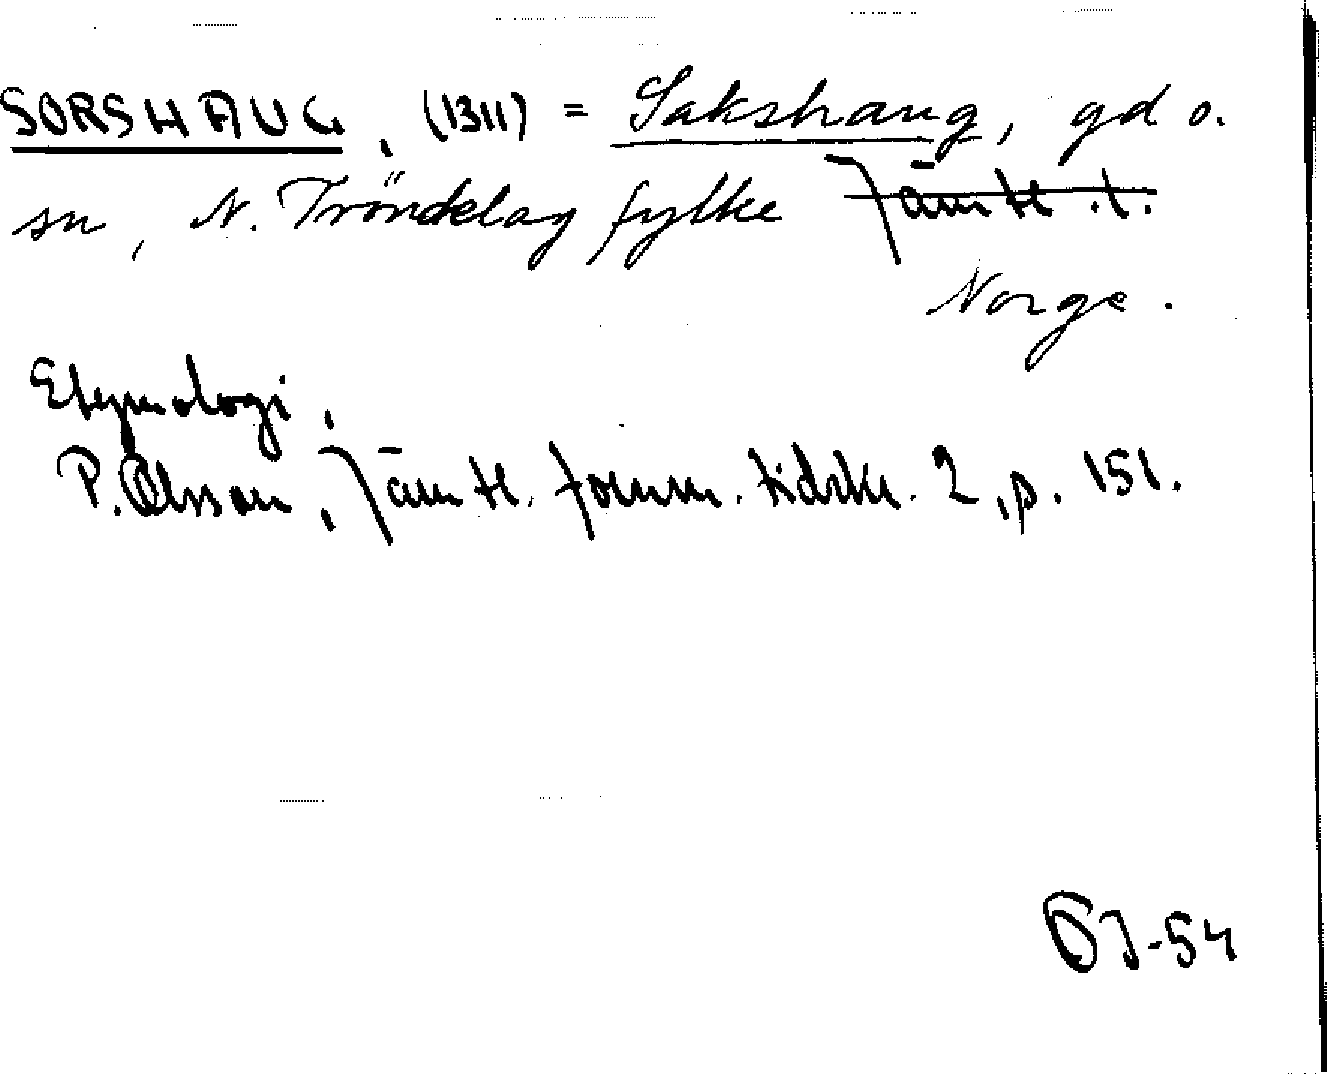 SORSHAUG, (1311) = Sakshaug, gd o.
sn, N. Tröndelag fylke Jämtl. l.
Norge.
Etymologi,
P. Olsson, Jämtl. fornm. tidskr. 2, p. 151.
ÖJ-54